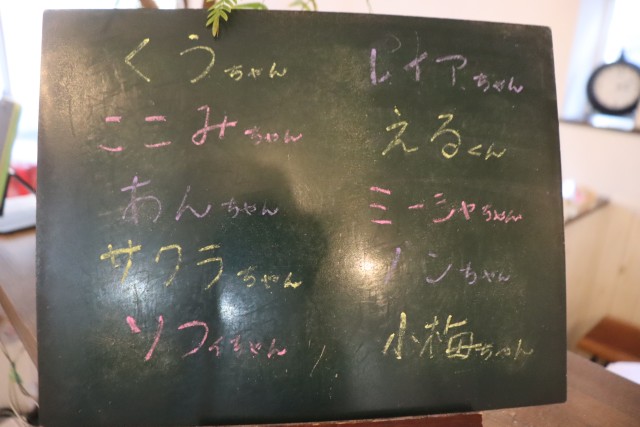 くうちゃん
ここみちゃん
あんちゃん
サクラちゃん
ソフィちゃん
レイアちゃん
えるくん
ミーシャちゃん
ノンちゃん
小梅ちゃん